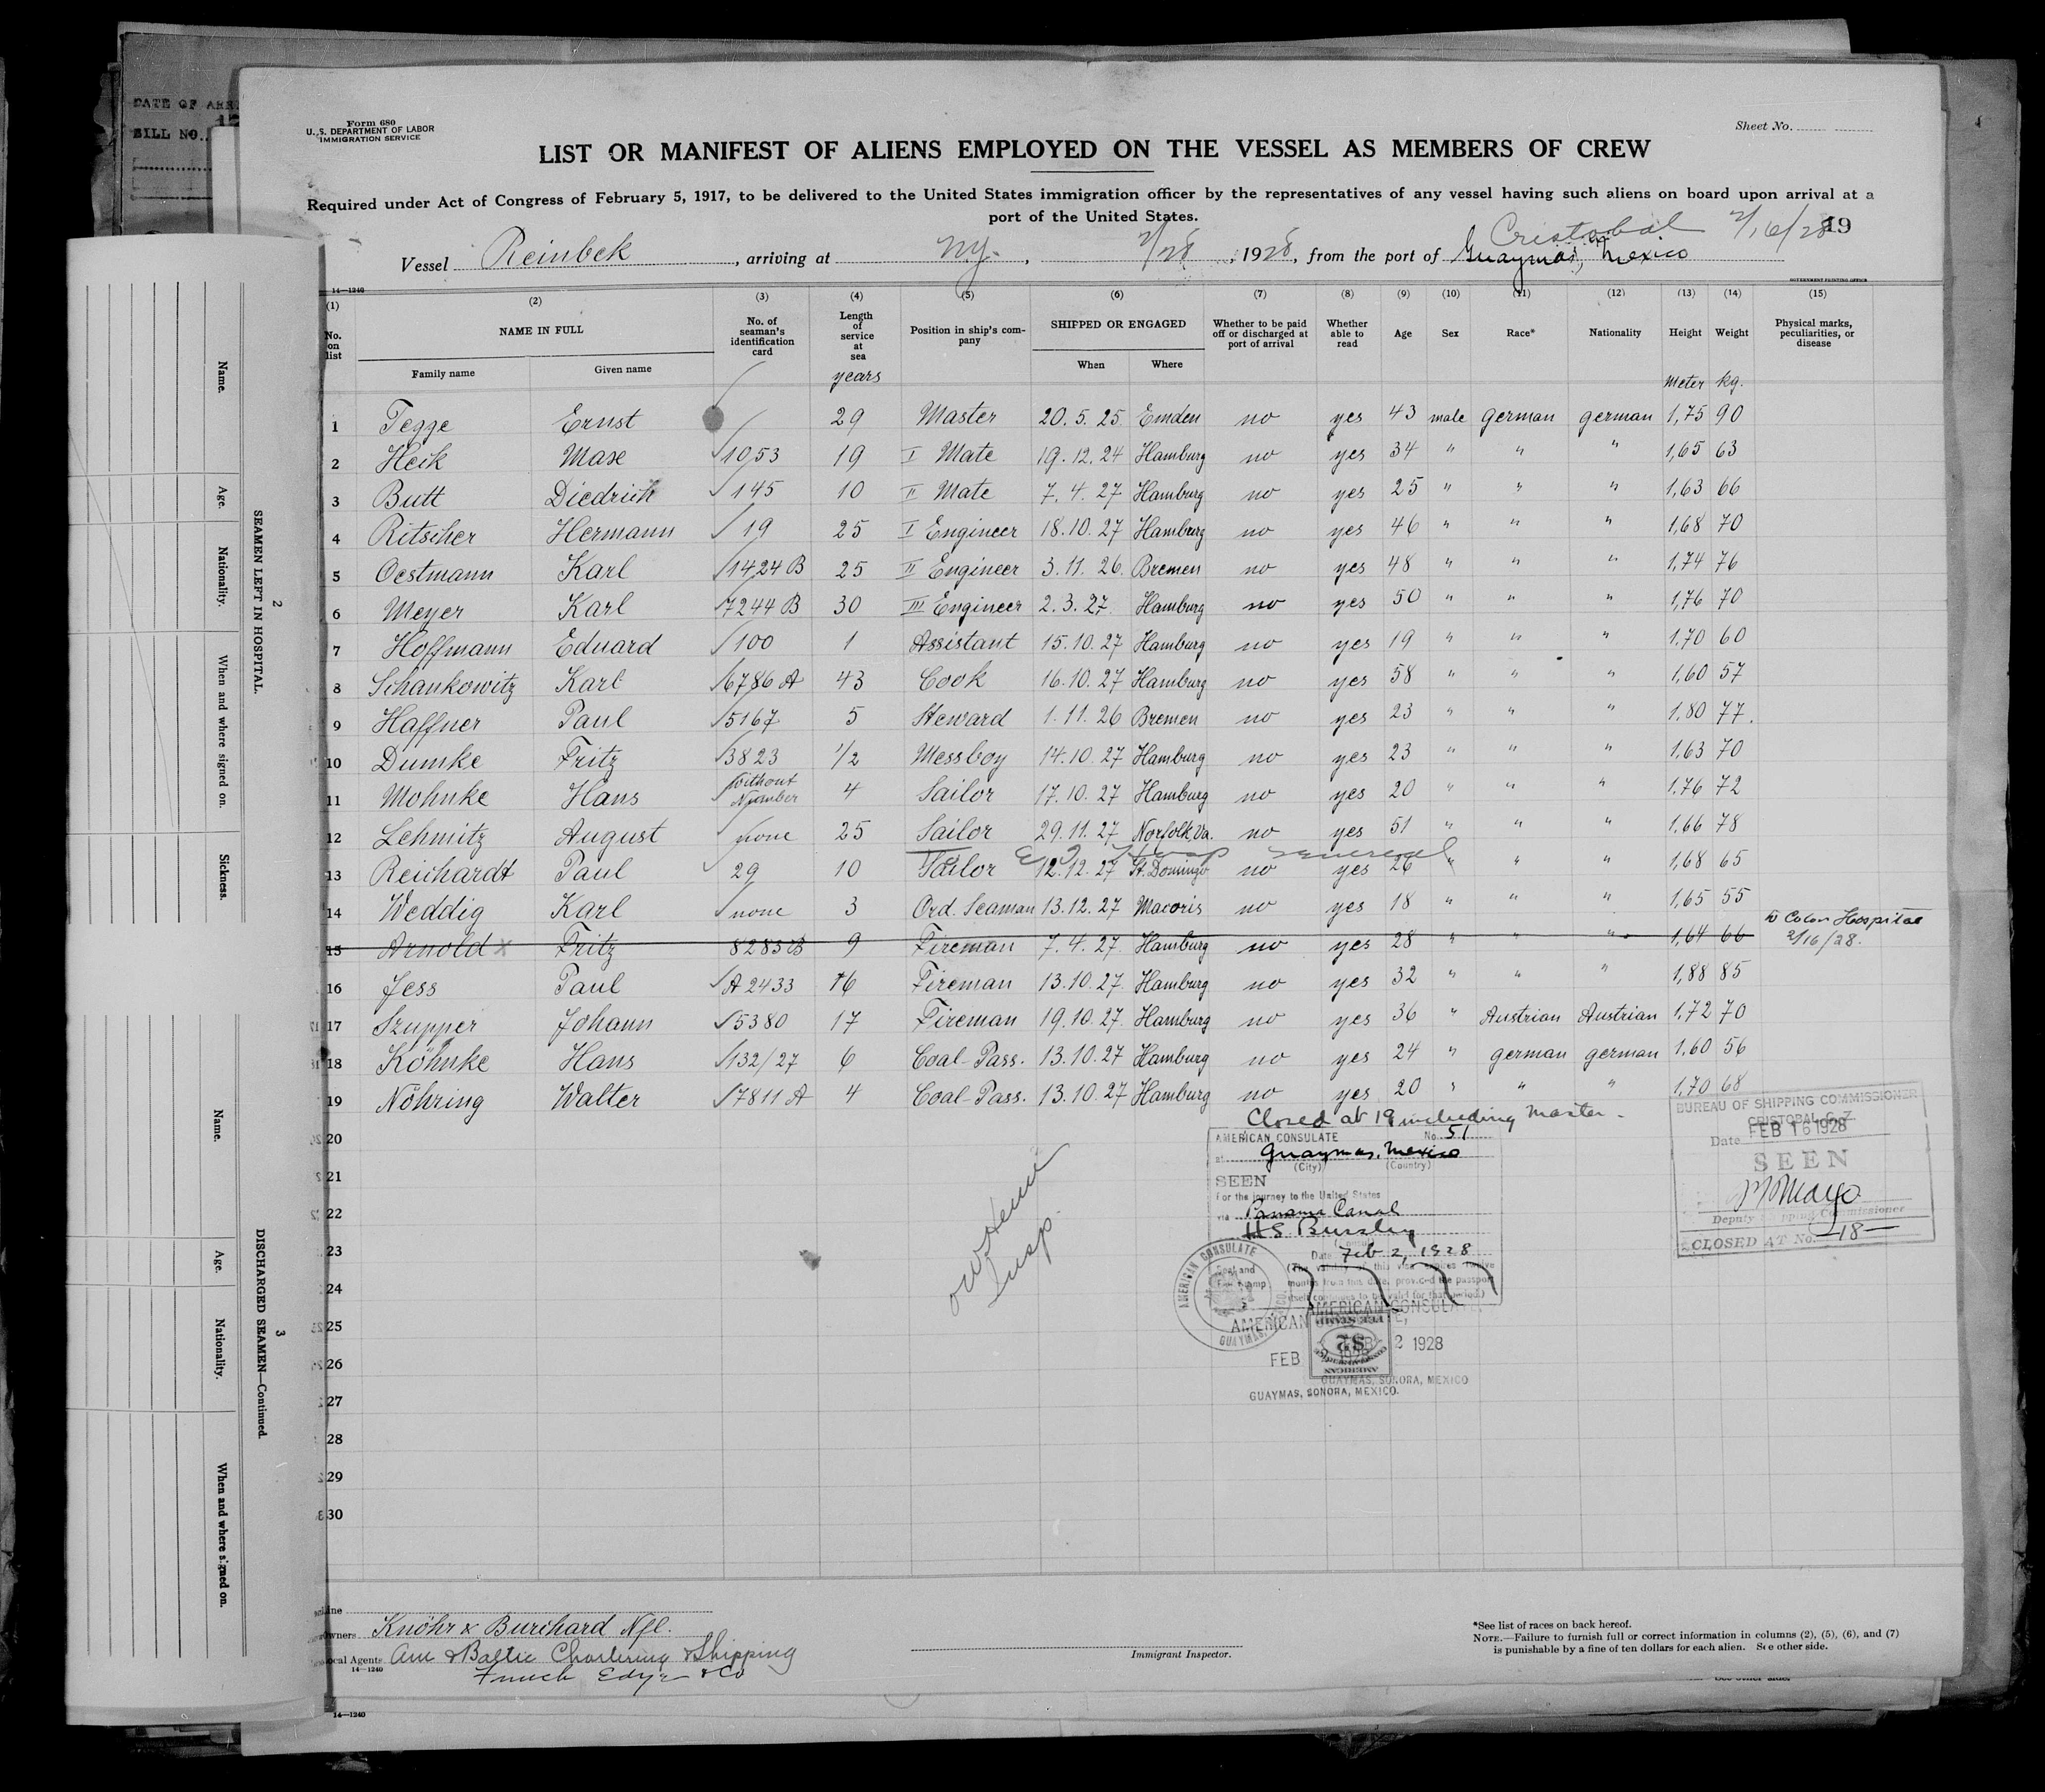 DATE OF ARR
BILL NO.
Form 680
U. S. DEPARTMENT OF LABOR
IMMIGRATION SERVICE
Sheet No.
LIST OR MANIFEST OF ALIENS EMPLOYED ON THE VESSEL AS MEMBERS OF CREW
Required under Act of Congress of February 5, 1917, to be delivered to the United States immigration officer by the representatives of any vessel having such aliens on board upon arrival at a
port of the United States.
Cristobal 2/16/28 19
Vessel Reinbek, arriving at N.Y., 2/28, 1928, from the port of Guaymas, Mexico
14—1240
GOVERNMENT PRINTING OFFICE
(1) (2) (3) (4) (5) (6) (7) (8) (9) (10) (11) (12) (13) (14) (15)
No. on list NAME IN FULL Family name Given name No. of seaman's identification card Length of service at sea Position in ship's company SHIPPED OR ENGAGED When Where Whether to be paid off or discharged at port of arrival Whether able to read Age Sex Race* Nationality Height Weight Physical marks, peculiarities, or disease
years Meter kg.
1 Tegge Ernst 29 Master 20.5.25 Emden no yes 43 male german german 1,75 90
2 Heik Mase 1053 19 I Mate 19.12.24 Hamburg no yes 34 " " " 1,65 63
3 Butt Diedrich 145 10 II Mate 7.4.27 Hamburg no yes 25 " " " 1,63 66
4 Ritscher Hermann 19 25 I Engineer 18.10.27 Hamburg no yes 46 " " " 1,68 70
5 Oestmann Karl 1424 B 25 II Engineer 3.11.26. Bremen no yes 48 " " " 1,74 76
6 Meyer Karl 7244 B 30 III Engineer 2.3.27. Hamburg no yes 50 " " " 1,76 70
7 Hoffmann Eduard 100 1 Assistant 15.10.27 Hamburg no yes 19 " " " 1.70 60
8 Schankowitz Karl 6786 A 43 Cook 16.10.27 Hamburg no yes 58 " " " 1,60 57
9 Haffner Paul 5167 5 Steward 1.11.26 Bremen no yes 23 " " " 1.80 77.
10 Dumke Fritz 3823 1/2 Messboy 14.10.27 Hamburg no yes 23 " " " 1.63 70
11 Mohnke Hans without Number 4 Sailor 17.10.27 Hamburg no yes 20 " " " 1.76 72
12 Schmitz August none 25 Sailor 29.11.27 Norfolk, Va. no yes 51 " " " 1.66 78
13 Reichardt Paul 29 10 Sailor 12.12.27 St. Domingo no yes 26 " " " 1,68 65
14 Weddig Karl none 3 Ord. Seaman 13.12.27 Macoris no yes 18 " " " 1,65 55
15 Arnold x Fritz 8283 B 9 Fireman 7.4.27. Hamburg no yes 28 " " " 1,64 66 to Colon Hospital 2/16/28.
16 Jess Paul A 2433 16 Fireman 13.10.27. Hamburg no yes 32 " " " 1,88 85
17 Szupper Johann 5380 17 Fireman 19.10.27. Hamburg no yes 36 " Austrian Austrian 1,72 70
18 Köhnke Hans 132/27 6 Coal-Pass. 13.10.27 Hamburg no yes 24 " german german 1.60 56
19 Nöhring Walter 7811 A 4 Coal-Pass. 13.10.27 Hamburg no yes 20 " " " 1,70 68
Closed at 19 including Master.
20
21
22
23
24
25
26
27
28
29
30
AMERICAN CONSULATE No. 51
at Guaymas, Mexico
(City) (Country)
SEEN
For the journey to the United States
via Panama Canal
H S Bursley
Date Feb 2, 1928
(The validity of this visa expires twelve
months from this date, provided the passport
itself continues to be valid for that period.)
AMERICAN CONSULATE
GUAYMAS
AMERICAN CONSULATE,
FEB 2 1928
GUAYMAS, SONORA, MEXICO
GUAYMAS, SONORA, MEXICO.
BUREAU OF SHIPPING COMMISSIONER
CRISTOBAL C. Z.
Date FEB 16 1928
SEEN
Deputy Shipping Commissioner
CLOSED AT No. 18
Insp.
Owners Knöhr & Burchard Nfl.
Local Agents Am & Baltic Chartering & Shipping
14—1240
& Co
Immigrant Inspector.
*See list of races on back hereof.
NOTE.—Failure to furnish full or correct information in columns (2), (5), (6), and (7)
is punishable by a fine of ten dollars for each alien. See other side.
14—1240
2
SEAMEN LEFT IN HOSPITAL.
Name.
Age.
Nationality.
When and where signed on.
Sickness.
3
DISCHARGED SEAMEN—Continued.
Name.
Age.
Nationality.
When and where signed on.